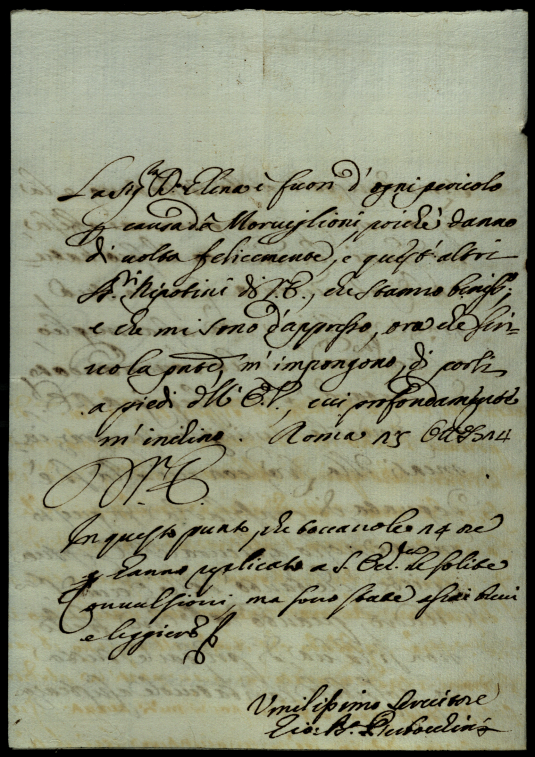 La Sig.ra D. Elena è fuori d'ogni pericolo
p causa dẽ Morviglioni, poiche danno
di volta felicemente, e quest'altri
SS.ri Nipotini di V.E., che stanno beniss.o,
e che mi sono d'appresso, ora che scri-
vo la pnte, m'impongono, di porli
a piedi dell'E.V., cui profondamente
m'inchino. Roma 15
D.V.E.
In questo punto, che sono le 14 ore
hanno replicato a S. Ecc.za le solite
Convulsioni, ma sono state assai brevi
e leggiere
Umilissimo Servitore
Gio: B.